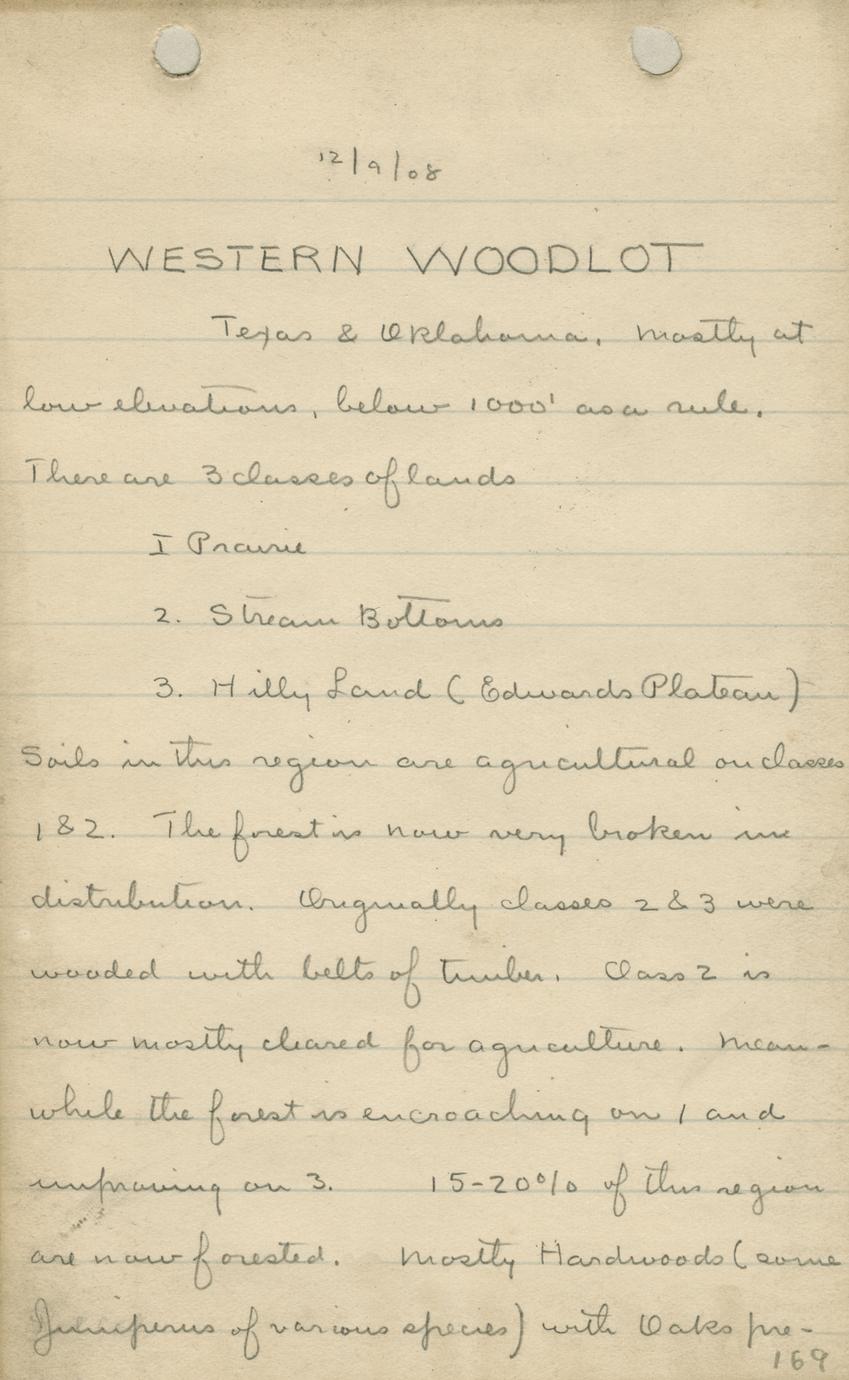 12/9/08
WESTERN WOODLOT
Texas & Oklahoma. Mostly at
low elevations, below 1000' as a rule.
There are 3 classes of lands
I Prairie
2. Stream Bottoms
3. Hilly Land (Edwards Plateau)
Soils in this region are agricultural on classes
1 & 2. The forest is now very broken in
distribution. Originally classes 2 & 3 were
wooded with belts of timber. Class 2 is
now mostly cleared for agriculture. Mean-
while the forest is encroaching on 1 and
improving on 3. 15-20% of this region
are now forested. Mostly Hardwoods (some
Juniperus of various species) with Oaks pre-
169